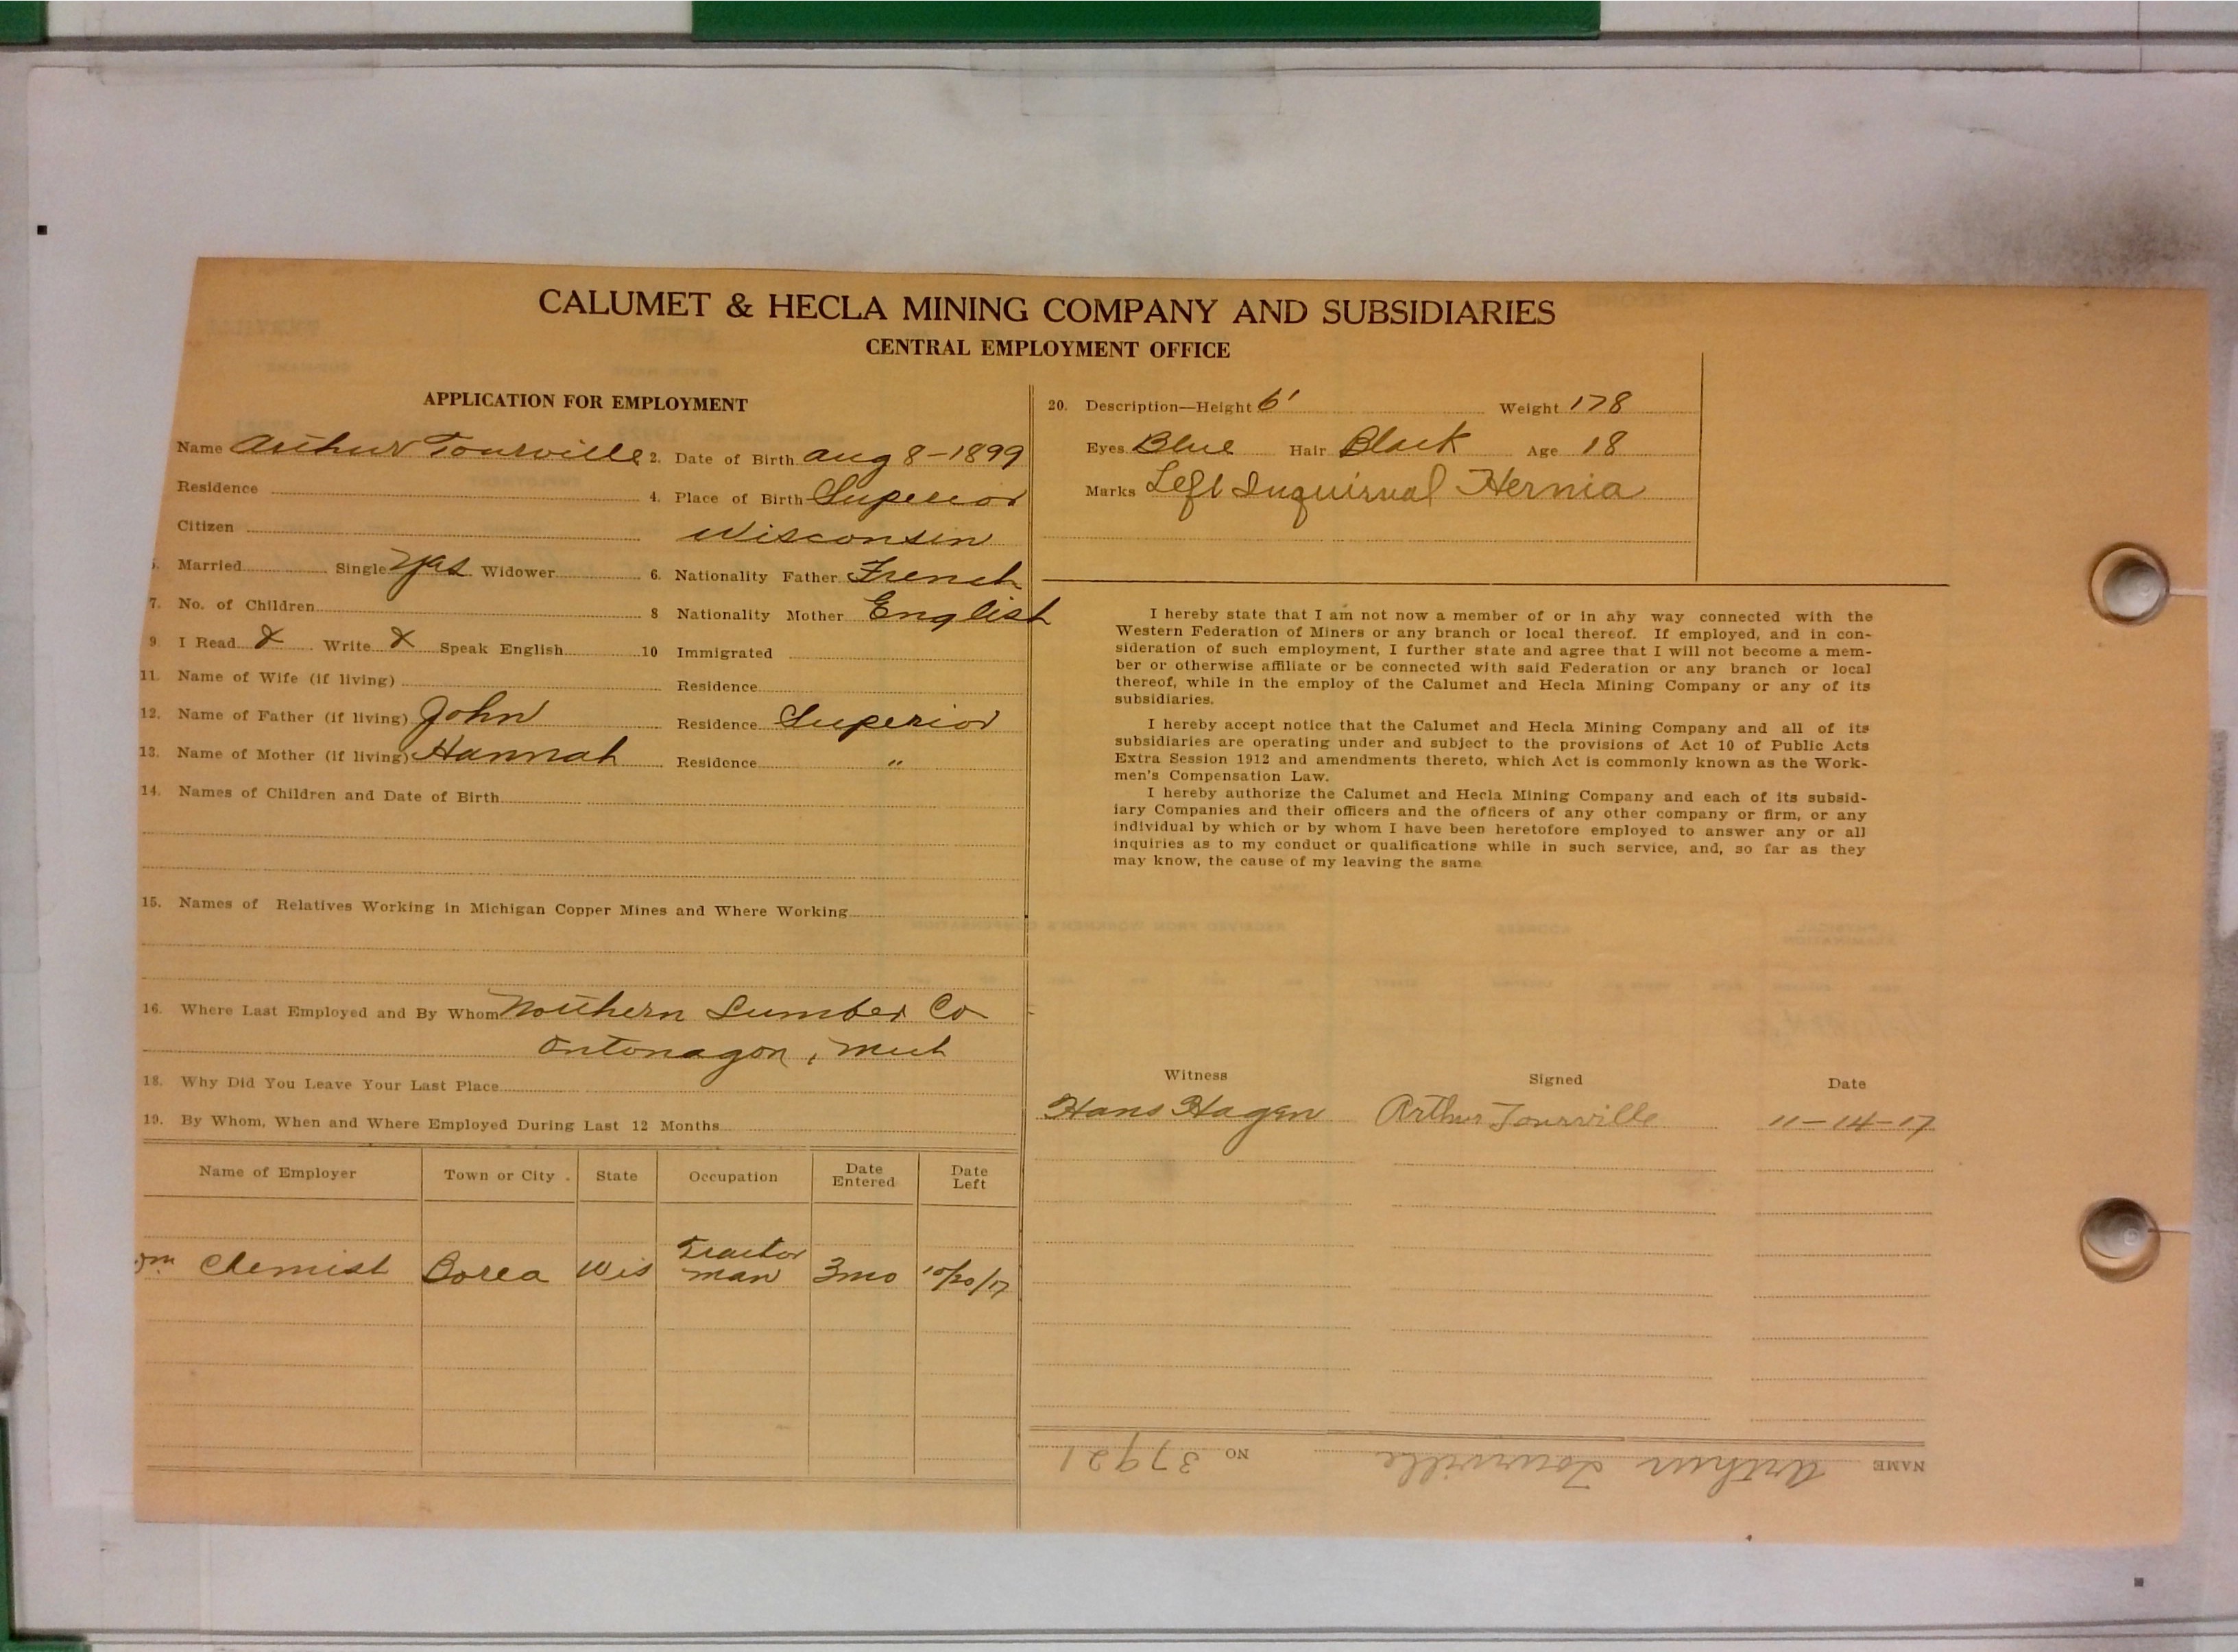 CALUMET & HECLA MINING COMPANY AND SUBSIDIARIES
CENTRAL EMPLOYMENT OFFICE
APPLICATION FOR EMPLOYMENT
Name Arthur Tourville 2. Date of Birth Aug 8-1899
Residence 4. Place of Birth Superior
Citizen Wisconsin
Married Single Yas Widower 6. Nationality Father French
7. No. of Children 8 Nationality Mother English
9 I Read X Write X Speak English 10 Immigrated
11. Name of Wife (if living) Residence
12. Name of Father (if living) John Residence Superior
13. Name of Mother (if living) Hannah Residence "
14. Names of Children and Date of Birth
15. Names of Relatives Working in Michigan Copper Mines and Where Working
16. Where Last Employed and By Whom Northern Lumber Co
Ontonagon, Mich
18. Why Did You Leave Your Last Place
19. By Whom, When and Where Employed During Last 12 Months
Name of Employer Town or City State Occupation Date Entered Date Left
Tractor
Wm Clemist Borea Wis man 3mo 10/20/17
20. Description—Height 6' Weight 178
Eyes Blue Hair Black Age 18
Marks Left Inquirual Hernia
I hereby state that I am not now a member of or in any way connected with the
Western Federation of Miners or any branch or local thereof. If employed, and in con-
sideration of such employment, I further state and agree that I will not become a mem-
ber or otherwise affiliate or be connected with said Federation or any branch or local
thereof, while in the employ of the Calumet and Hecla Mining Company or any of its
subsidiaries.
I hereby accept notice that the Calumet and Hecla Mining Company and all of its
subsidiaries are operating under and subject to the provisions of Act 10 of Public Acts
Extra Session 1912 and amendments thereto, which Act is commonly known as the Work-
men's Compensation Law.
I hereby authorize the Calumet and Hecla Mining Company and each of its subsid-
iary Companies and their officers and the officers of any other company or firm, or any
individual by which or by whom I have been heretofore employed to answer any or all
inquiries as to my conduct or qualifications while in such service, and, so far as they
may know, the cause of my leaving the same
Witness Signed Date
Hans Hagen Arthur Tourville 11-14-17
NAME Arthur Tourville NO 37921